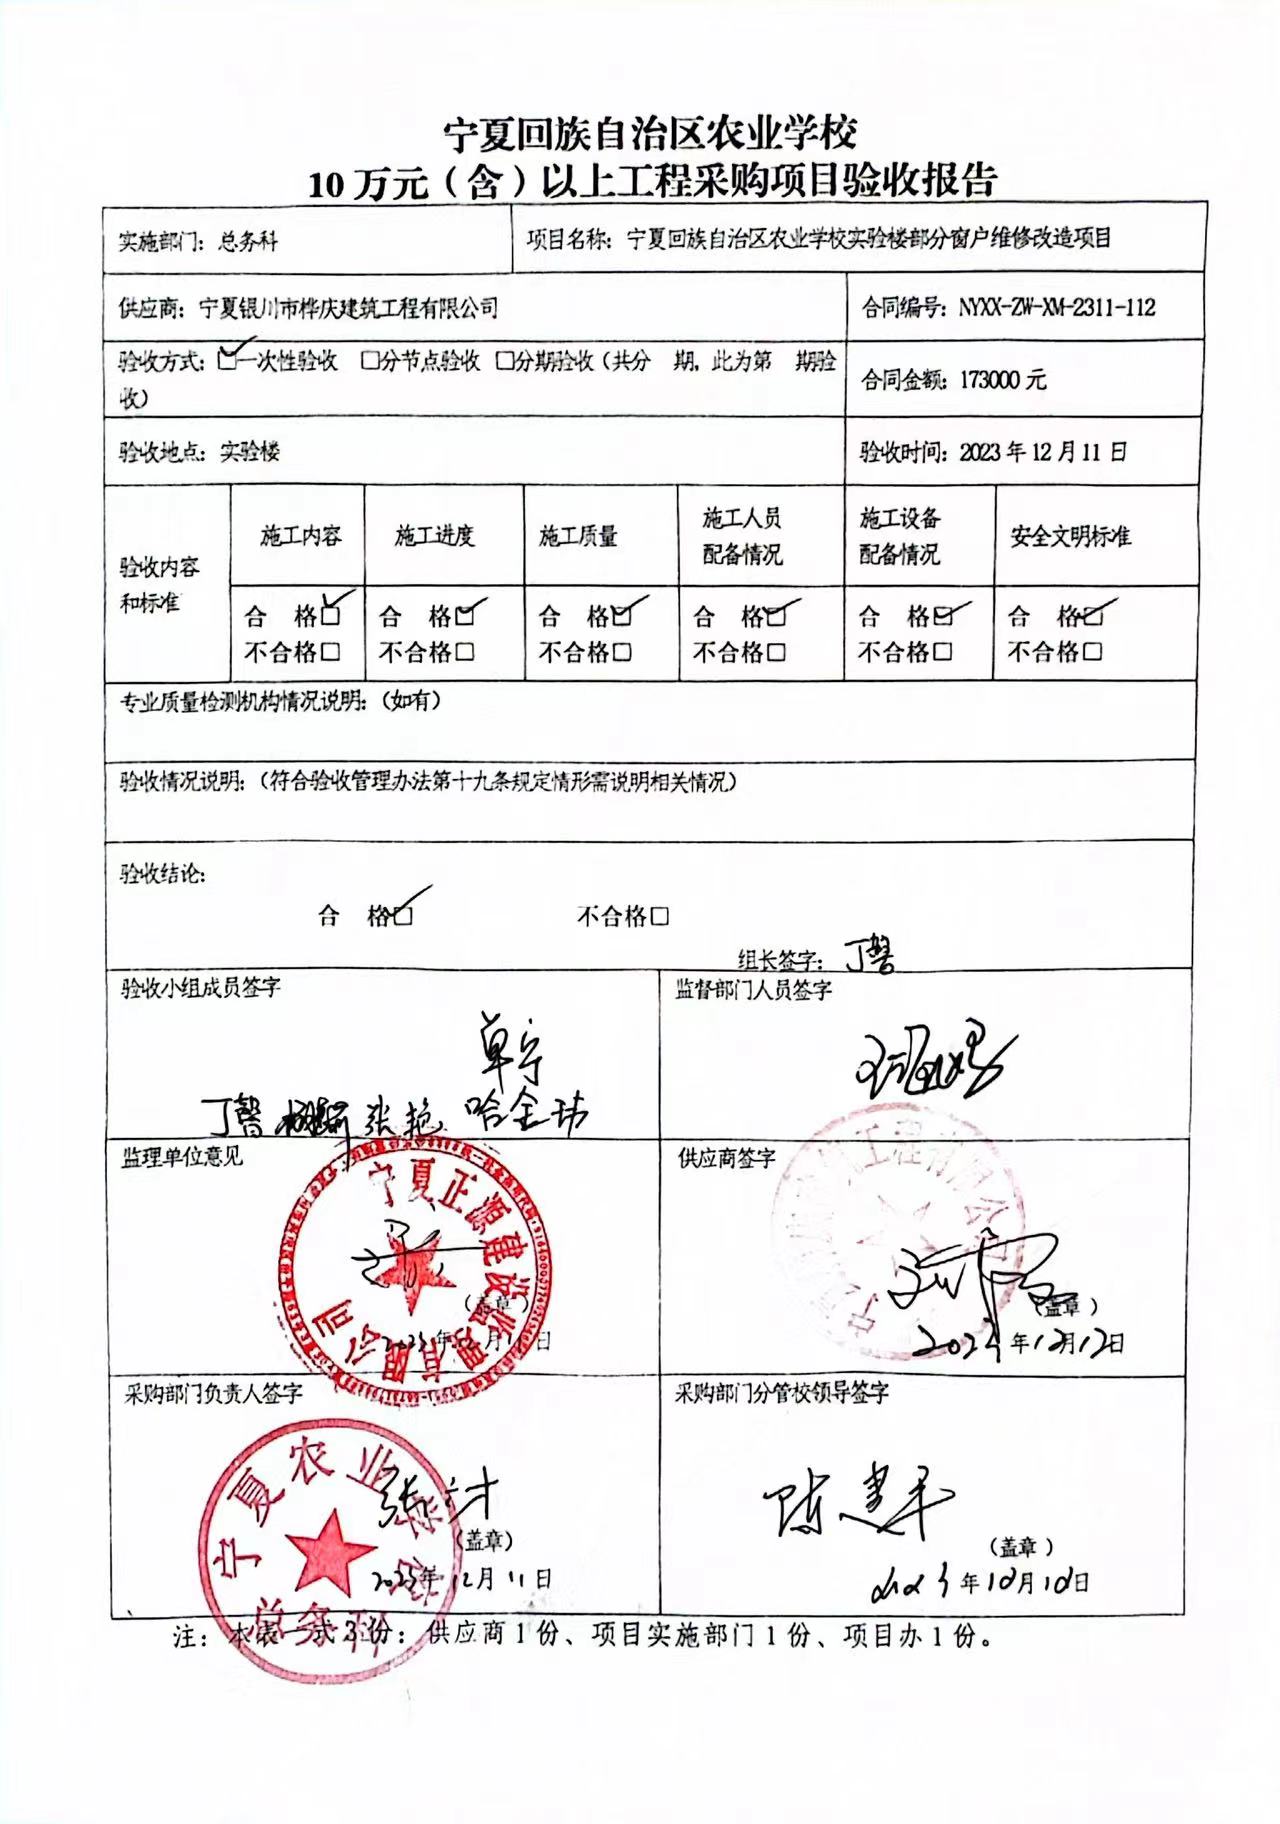 宁夏回族自治区农业学校
10万元（含）以上工程采购项目验收报告
实施部门：总务科
项目名称：宁夏回族自治区农业学校实验楼部分窗户维修改造项目
供应商：宁夏银川市桦庆建筑工程有限公司
合同编号：NYXX-ZW-XM-2311-112
验收方式：☑一次性验收 □分节点验收 □分期验收（共分 期，此为第 期验
收）
合同金额：173000元
验收地点：实验楼
验收时间：2023年12月11日
验收内容
和标准
施工内容
施工进度
施工质量
施工人员
配备情况
施工设备
配备情况
安全文明标准
合 格☑ 合 格☑ 合 格☑ 合 格☑ 合 格☑ 合 格☑
不合格□ 不合格□ 不合格□ 不合格□ 不合格□ 不合格□
专业质量检测机构情况说明：（如有）
验收情况说明：（符合验收管理办法第十九条规定情形需说明相关情况）
验收结论：
合 格☑ 不合格□
组长签字：丁馨
验收小组成员签字
单宁
丁馨 张艳 哈金玮
监督部门人员签字
监理单位意见
宁夏正源建设监理有限公司
（盖章）
供应商签字
工程有限公司
（盖章）
2023年12月12日
采购部门负责人签字
宁夏农业学校
总务科
（盖章）
2023年12月11日
采购部门分管校领导签字
陈建军
（盖章）
注：本表一式3份：供应商1份、项目实施部门1份、项目办1份。